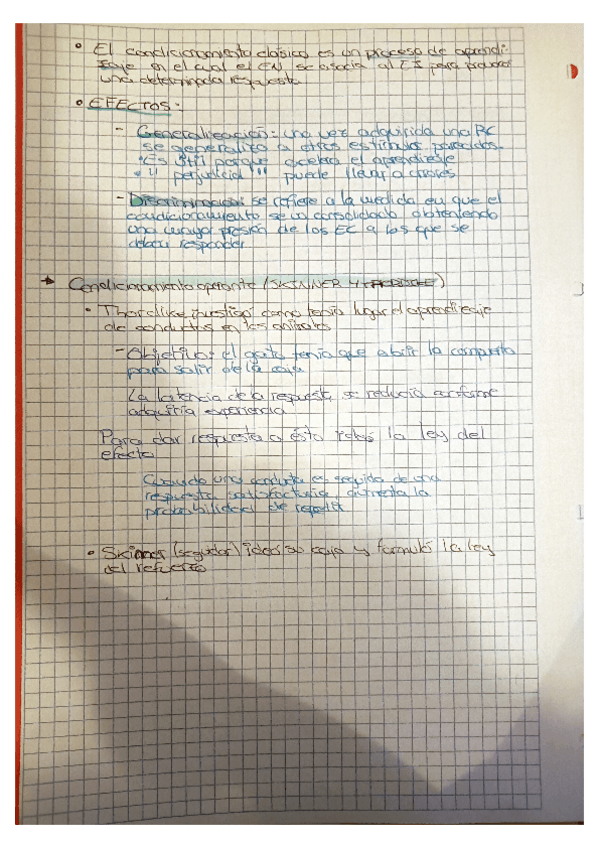 • El condicionamiento clásico es un proceso de aprendi-
zaje en el cual el EN se asocia al EI para provocar
una determinada respuesta
• EFECTOS:
- Generalización: una vez adquirida una RC
se generaliza a otros estímulos parecidos.
• Es útil porque acelera el aprendizaje
• " perjudicial " puede llevar a errores
- Discriminación: se refiere a la medida en que el
condicionamiento se va consolidando obteniendo
una mayor de los EC a los que se
deben responder
→ Condicionamiento operante (SKINNER Y
• Thorndike investigó como tenía lugar el aprendizaje
de conductas en los animales
- Objetivo: el gato tenía que abrir la compuerta
para salir de la caja
La latencia de la respuesta se reducía conforme
adquiría experiencia
Para dar respuesta a ésto la ley del
efecto
Cuando una conducta es seguida de una
respuesta satisfactoria, aumenta la
probabilidad de repetir
• Skinner (seguidor) ideó su caja y formuló la ley
del refuerzo